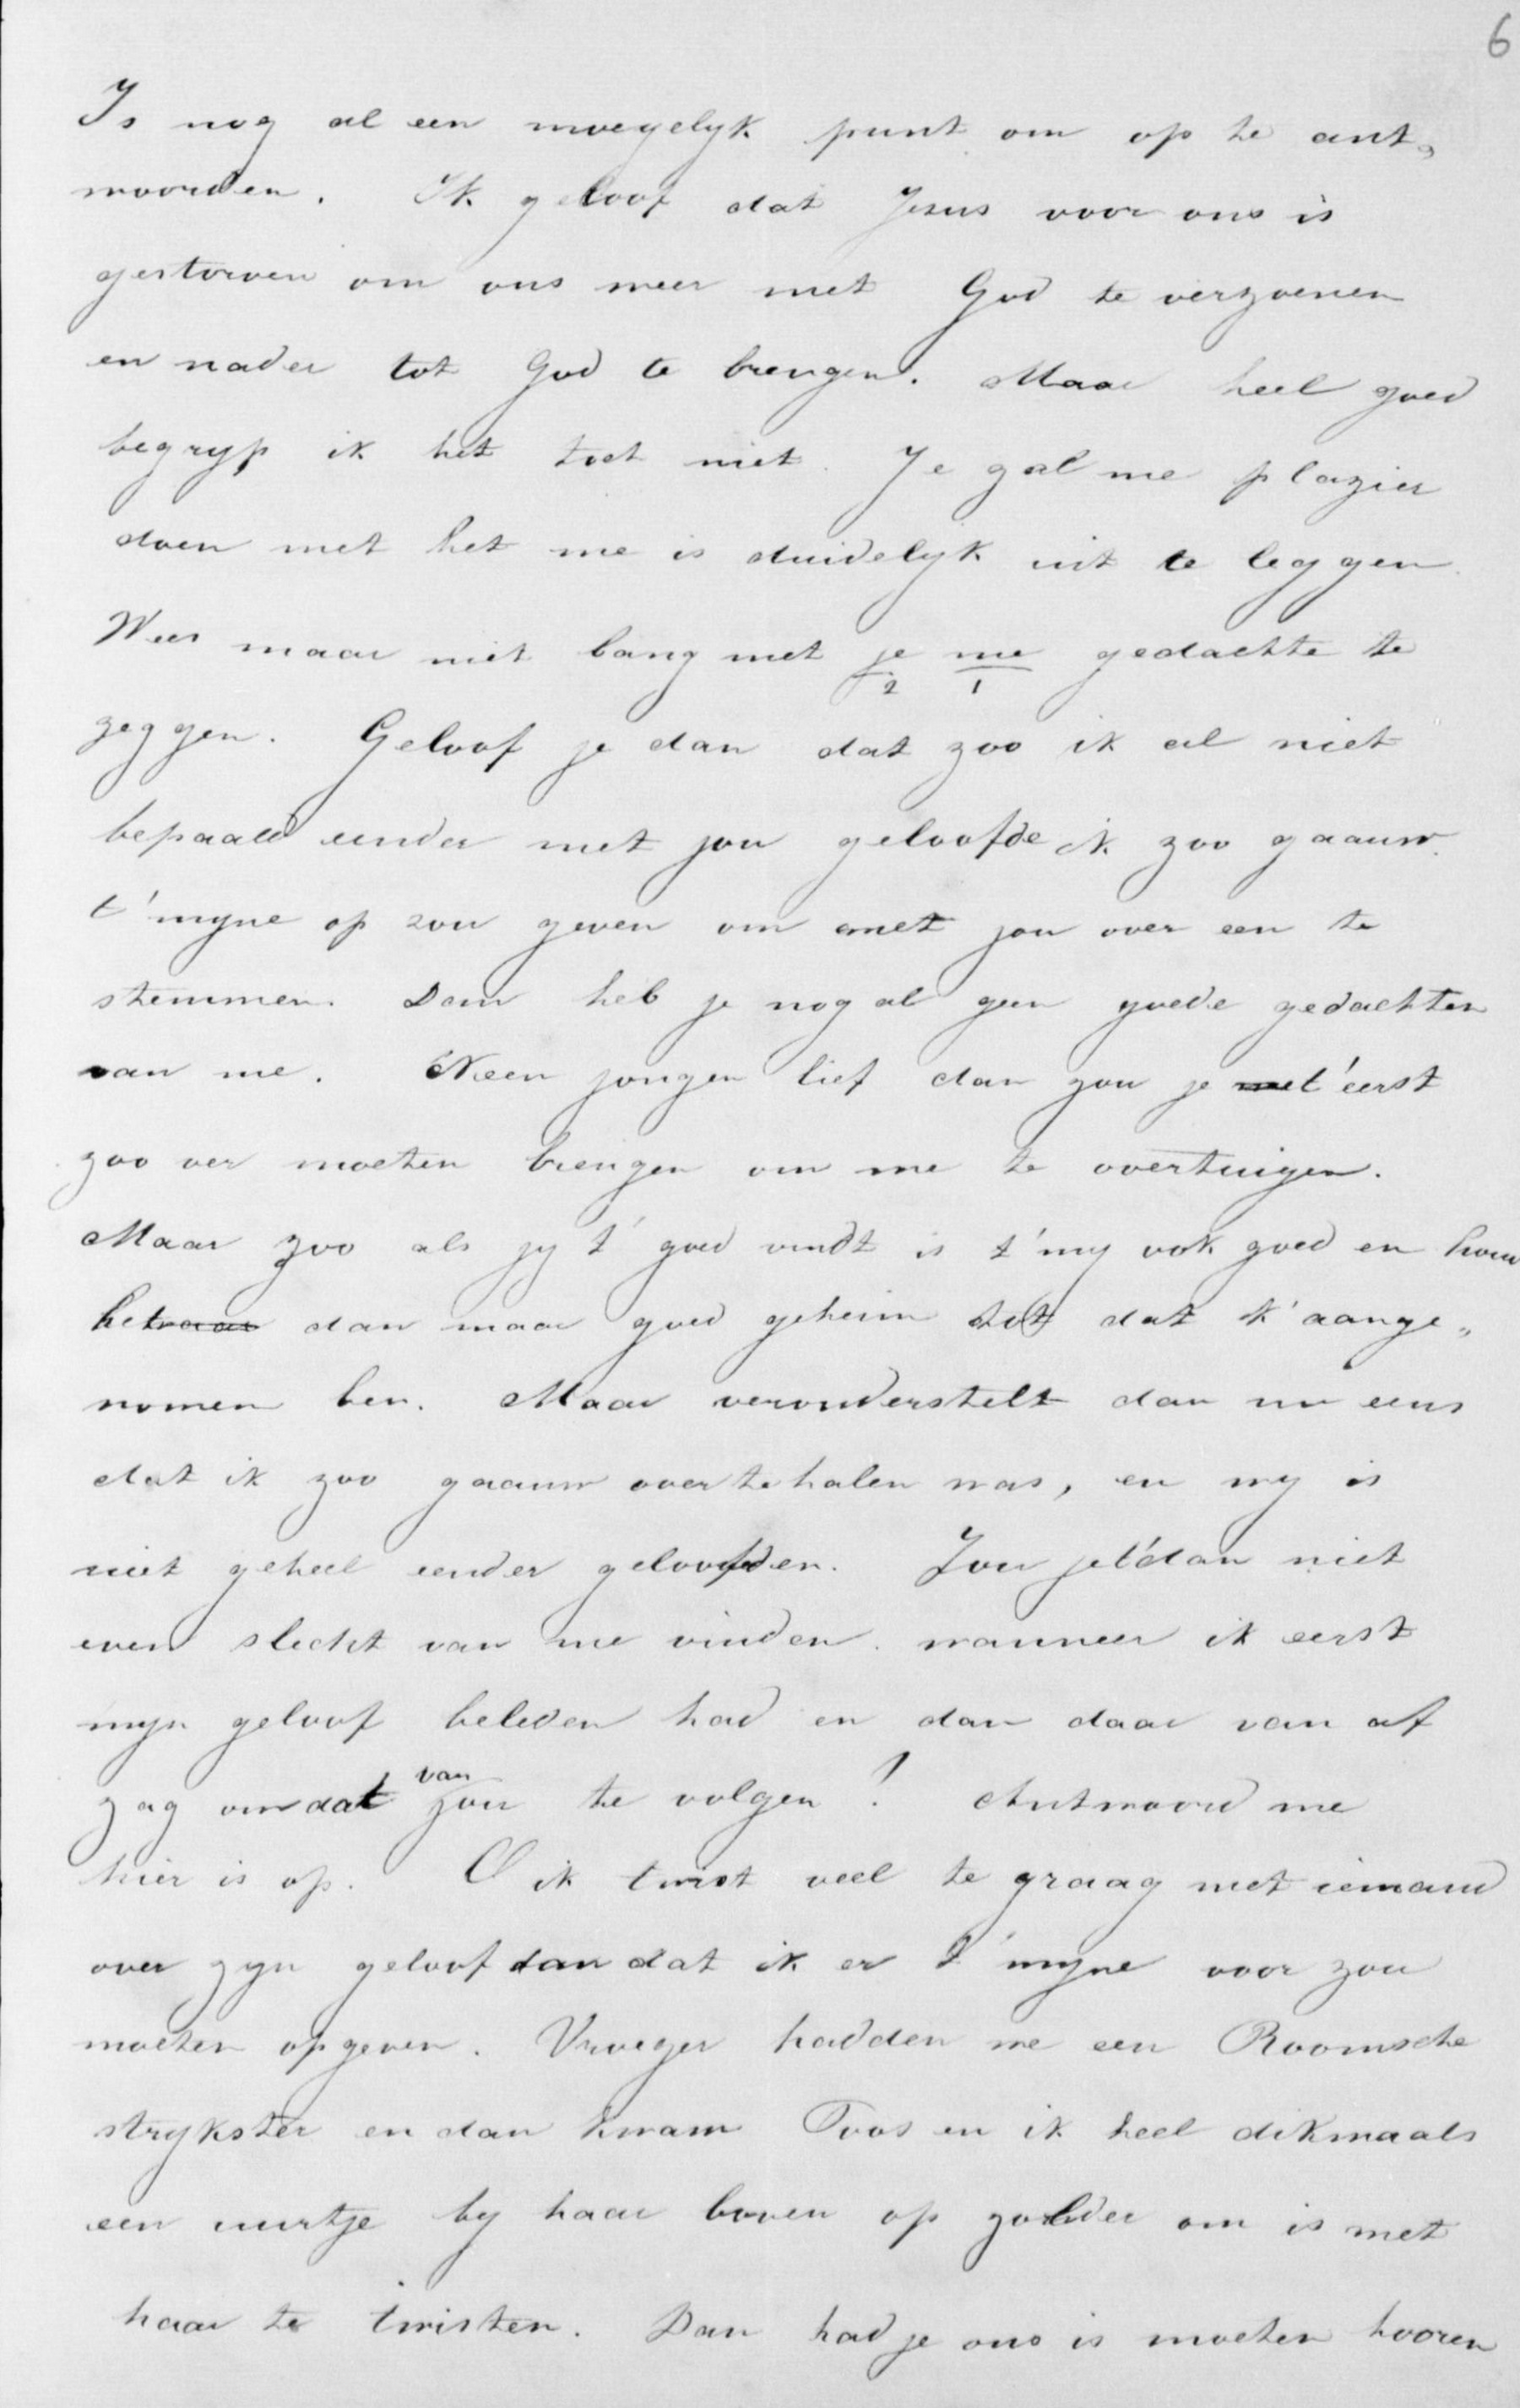 6
Is nog al een moegelyk punt om op te ant„
woorden. Ik geloof dat Jesus voor ons is
gestorven om ons meer met God te verzoenen
en nader tot God te brengen. Maar heel goed
begryp ik het toch niet. Je zal me plazier
doen met het me is duidelyk uit te leggen.
Wees maar niet bang met je me gedachte te
2 1
zeggen. Geloof je dan dat zoo ik al niet
bepaald eender met jou geloofde ik zoo gaauw
t'myne op zou geven om met jou over een te
stemmen. Dan heb je nog al geen goede gedachten
van me. Neen jongen lief dan zou je met'eerst
zoo ver moeten brengen om me te overtuigen.
Maar zoo als jy t' goed vindt is t'my ook goed en hou
het dan maar goed geheim tot dat k'aange„
nomen ben. Maar veronderstelt dan nu eens
dat ik zoo gaauw overtehalen was, en wy is
niet geheel eender geloofden. Zou jet'dan niet
even slecht van me vinden wanneer ik eerst
myn geloof beleden had en dan daar van af
zag om dat van jou te volgen? Antwoord me
hier is op. O ik twist veel te graag met iemand
over zyn geloof dan dat ik er t'myne voor zou
moeten opgeven. Vroeger hadden we een Roomsche
strykster en dan kwam Toos en ik heel dikmaals
een uurtje by haar boven op zolder om is met
haar te twisten. Dan had je ons is moeten hooren